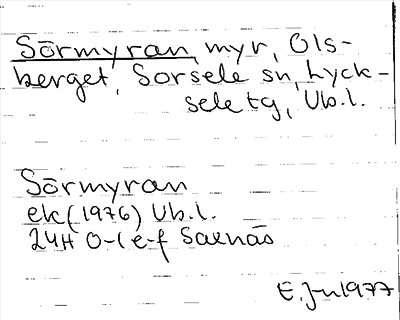 Sörmyran, myr, Ols-
berget, Sorsele sn, Lyck-
sele tg, Vb.l.
Sörmyran
ek (1976) Vb.l.
24H 0-1 e-f Saxnäs
E. Jn 1977